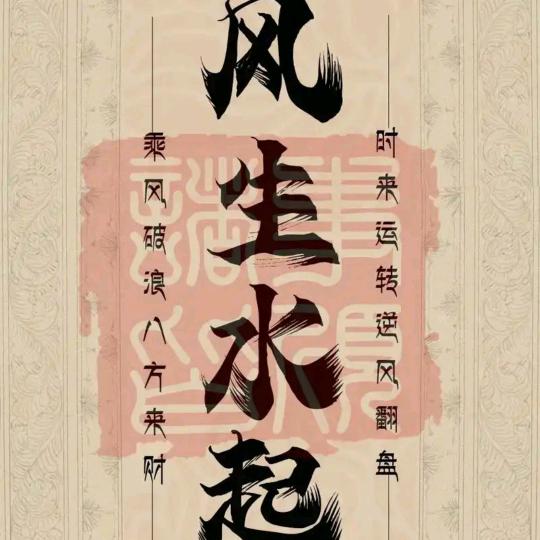 时来运转逆风翻盘
风生水起
乘风破浪八方来财